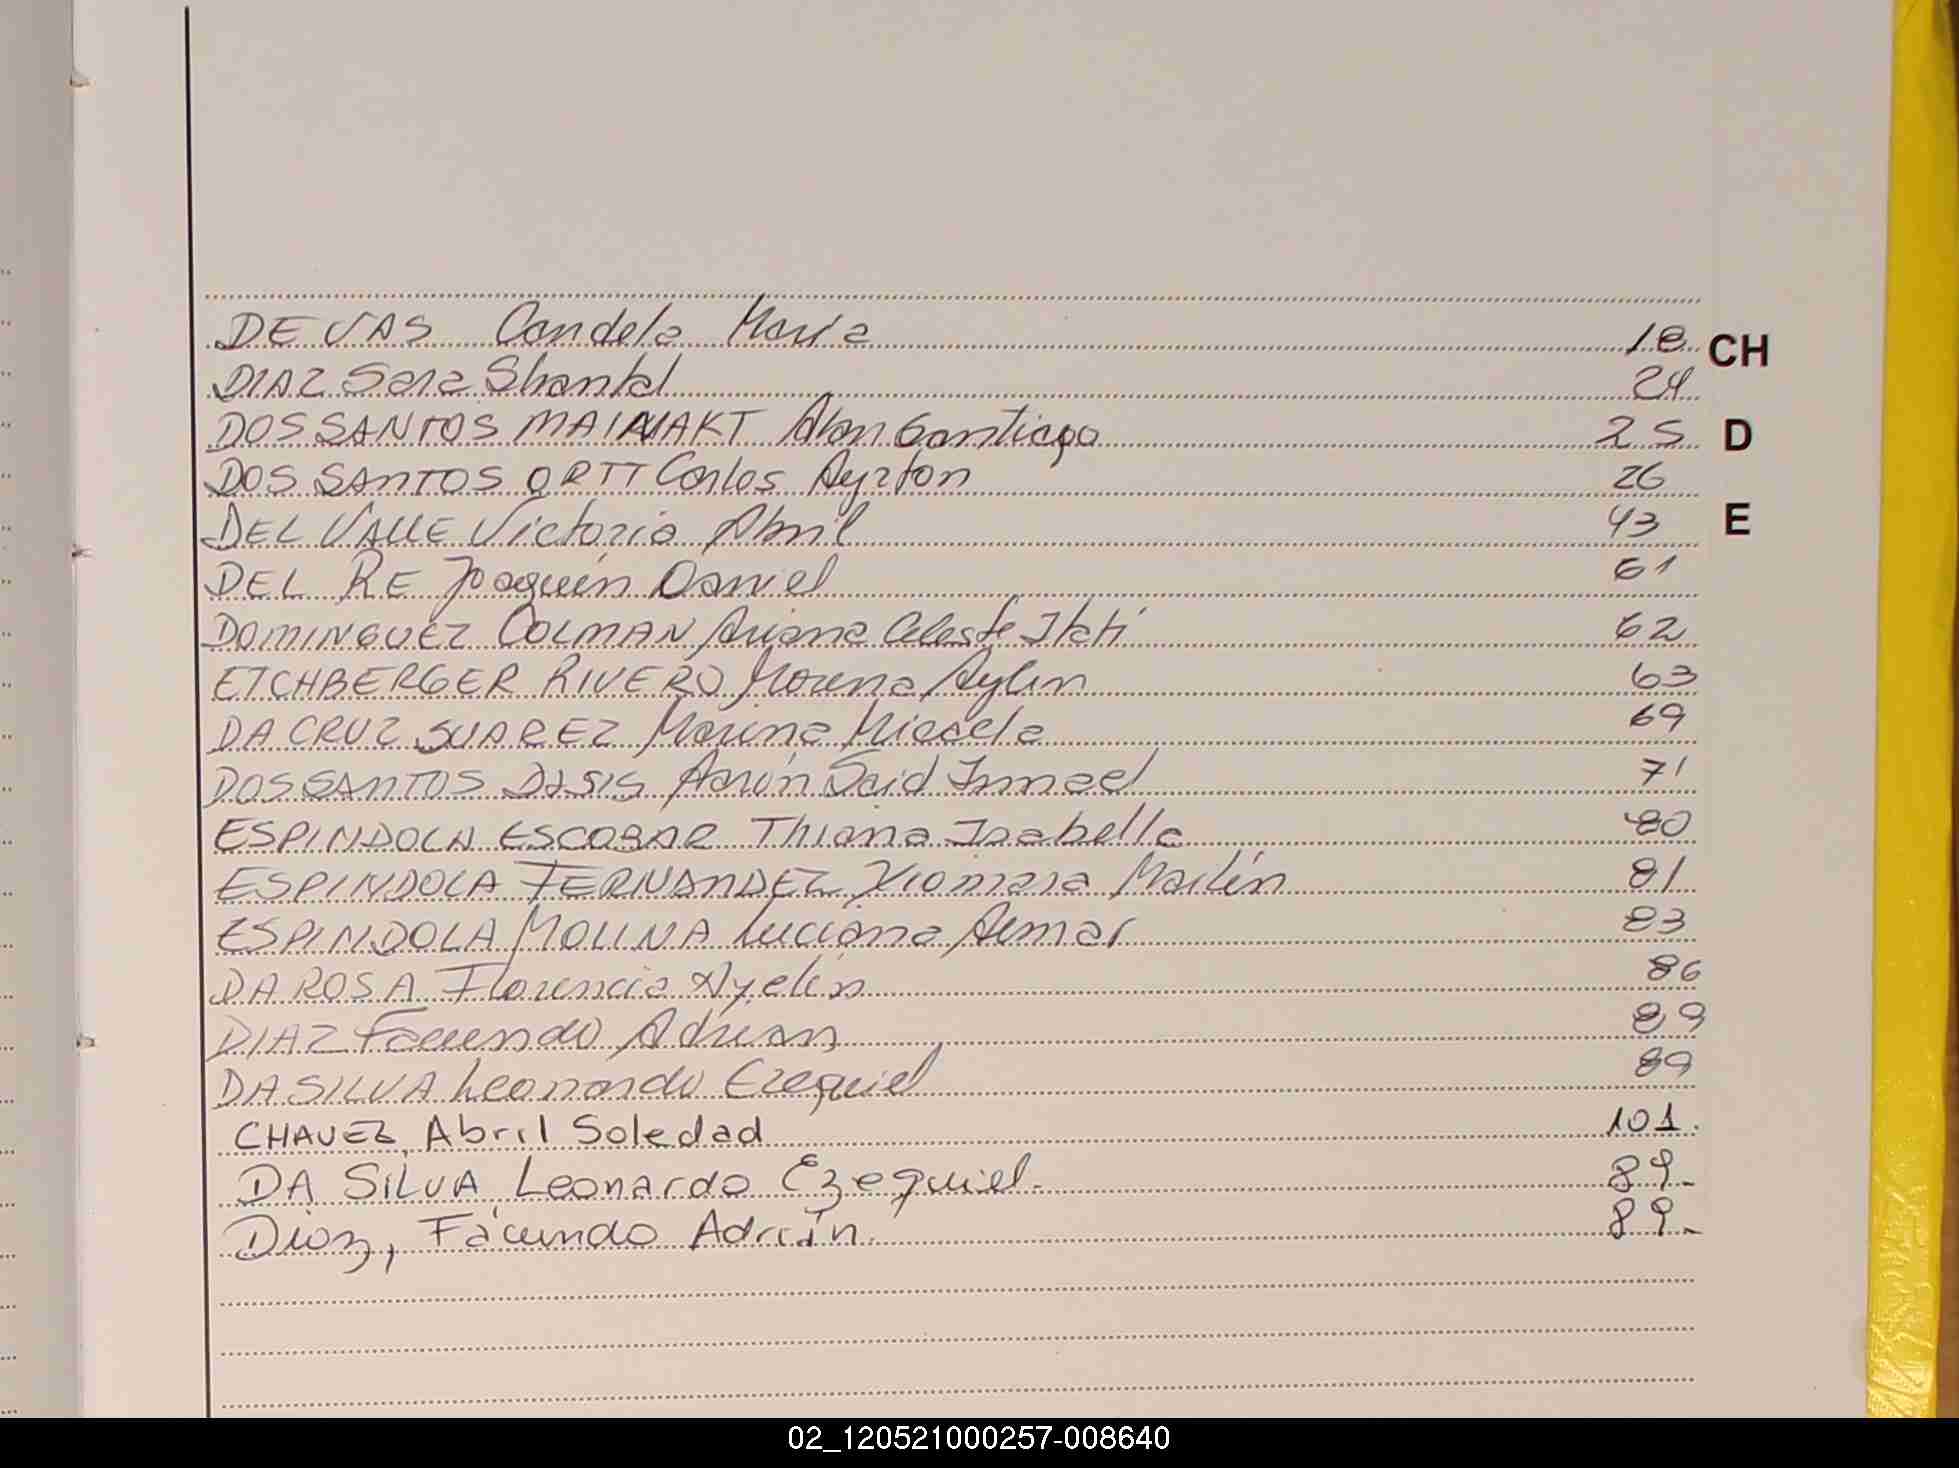 DEVAS Candela María 18 CH
DIAZ Sara Shantal 24
DOS SANTOS MAINAKT Alan Santiago 25 D
DOS SANTOS ORTT Carlos Ayrton 26
DEL VALLE Victoria Abril 43 E
DEL RE Joaquín Daniel 61
DOMINGUEZ COLMAN Ariana Celeste Itatí 62
ETCHBERGER RIVERO Morena Aylen 63
DA CRUZ SUAREZ Marina Micaela 69
DOS SANTOS Aarón Said Ismael 71
ESPINDOLA ESCOBAR Thiana Isabella 80
ESPINDOLA FERNANDEZ Xiomara Mailén 81
ESPINDOLA MOLINA Luciana 83
DA ROSA Florencia Nyelén 86
DIAZ Facundo Adrian 89
DA SILVA Leonardo Ezequiel 89
CHAVEZ, Abril Soledad 101.
DA SILVA Leonardo Ezequiel. 89.-
Diaz, Facundo Adrián. 89.-
02_120521000257-008640